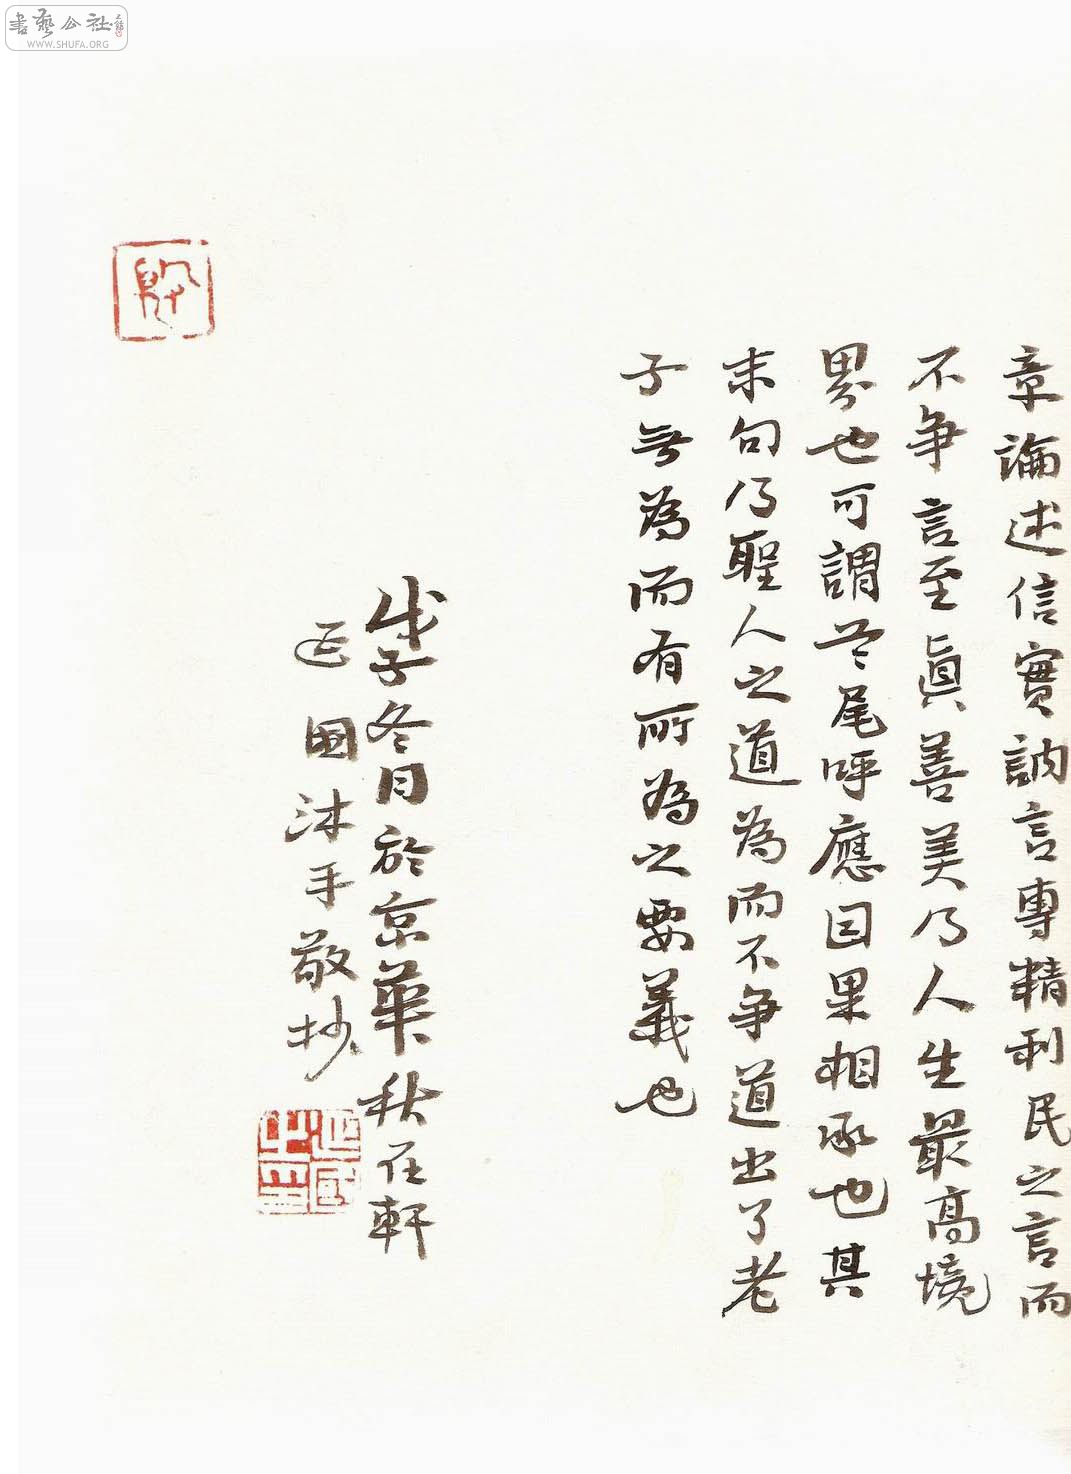 書藝公社
WWW.SHUFA.ORG
章論述信實訥言專精利民之言而
不争言至眞善美乃人生最高境
界也可謂尾呼應因果相承也其
末句乃聖人之道為而不争道出了老
子無為而有所為之要義也
戊子冬月於京華秋在軒
延國沐手敬抄
延國之璽